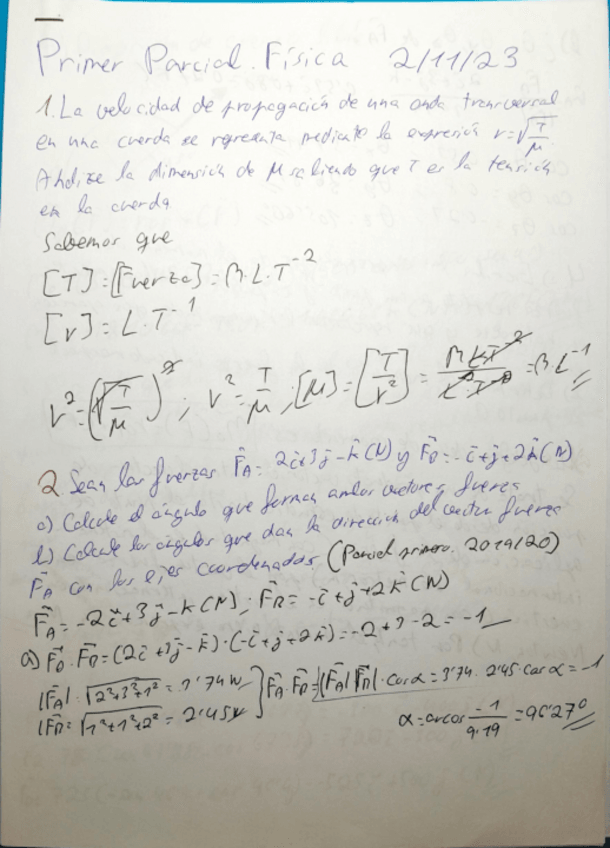 Primer Parcial. Física 2/11/23
1. La velocidad de propagación de una onda transversal
en una cuerda se representa mediante la expresión v=√(T/μ).
Analize la dimensión de μ sabiendo que T es la tensión
en la cuerda.
Sabemos que
[T]=[Fuerza]=M·L·T⁻²
[v]=L·T⁻¹
v²=(√(T/μ))²; v²=T/μ; [μ]=[T/v²]=(M·L·T⁻²)/(L²·T⁻²)=M·L⁻¹
2 Sean las fuerzas F⃗A=2i⃗+3j⃗-k⃗(N) y F⃗B=-i⃗+j⃗+2k⃗(N)
a) Calcule el ángulo que forman ambos vectores fuerza
b) Calcule los ángulos que dan la dirección del vector fuerza
F⃗A con los ejes coordenados, (Parcial primero. 2019/20)
F⃗A=-2i⃗+3j⃗-k⃗(N); F⃗B=-i⃗+j⃗+2k⃗(N)
a) F⃗A·F⃗B=(2i⃗+3j⃗-k⃗)·(-i⃗+j⃗+2k⃗)=-2+3-2=-1
|F⃗A|=√(2²+3²+1²)=3'74N } F⃗A·F⃗B=|F⃗A|·|F⃗B|·cosα=3'74·2'45·cosα=-1
|F⃗B=√(1²+1²+2²)=2'45N
α=arcos -1/9'19=96'27º